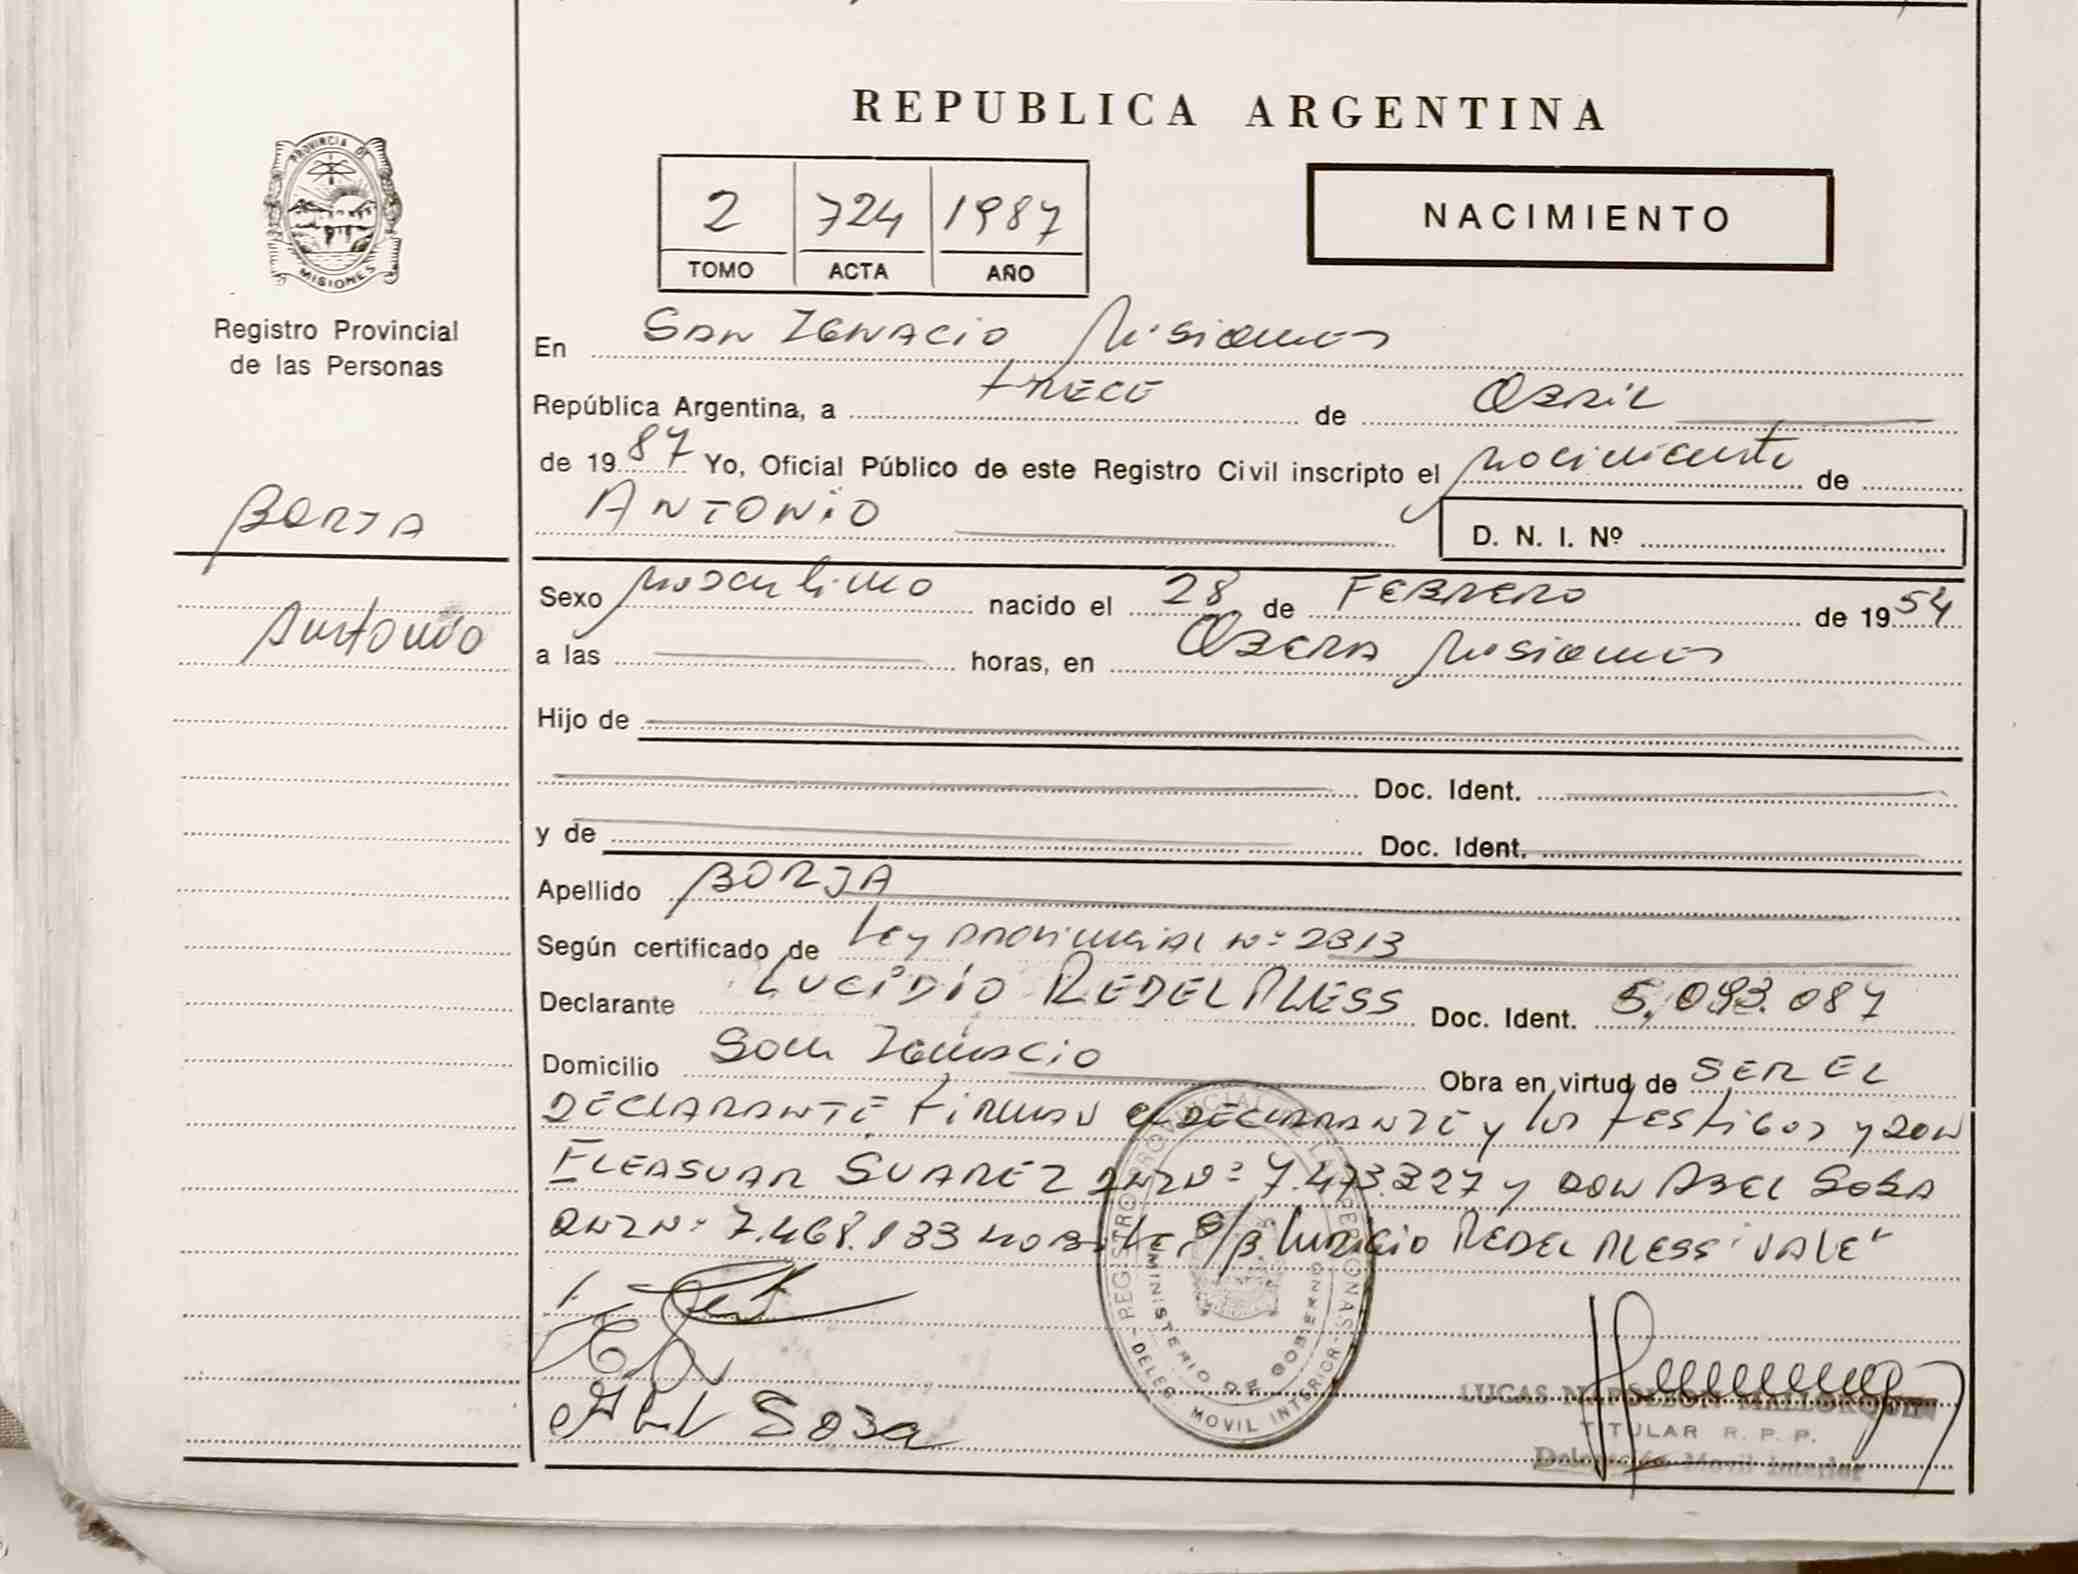 REPUBLICA ARGENTINA
PROVINCIA DE MISIONES
Registro Provincial
de las Personas
2 724 1987
TOMO ACTA AÑO
NACIMIENTO
En San Ignacio Misiones
República Argentina, a trece de Abril
de 1987 Yo, Oficial Público de este Registro Civil inscripto el nacimiento de
Antonio D. N. I. Nº
Borja
Antonio
Sexo masculino nacido el 28 de Febrero de 1954
a las horas, en Obera Misiones
Hijo de
Doc. Ident.
y de Doc. Ident.
Apellido Borja
Según certificado de Ley Provincial Nº 2313
Declarante Lucidio Redel Doc. Ident. 5.093.087
Domicilio San Ignacio Obra en virtud de ser el
declarante firman el declarante y los testigos y don
Suarez DNI Nº 7.473.327 y don Abel Sosa
DNI Nº 7.468.133 Redel "Vale"
Abel Sosa
REGISTRO PROVINCIAL DE LAS PERSONAS
MINISTERIO DE GOBIERNO
DELEG. MOVIL INTERIOR
LUCAS NAPOLEON MALLORQUIN
TITULAR R. P. P.
Delegación Movil Interior